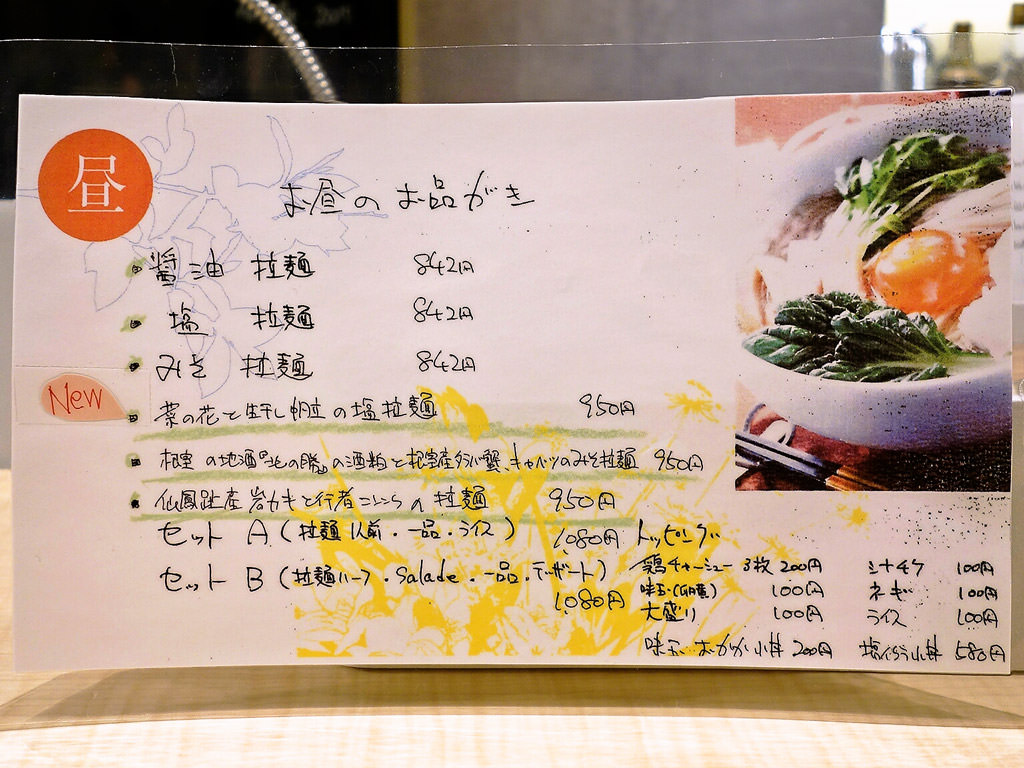 昼
お昼のお品がき
醤油 拉麺 842円
塩 拉麺 842円
みそ 拉麺 842円
New
菜の花と生干し帆立の塩拉麺 950円
根室の地酒『北の勝』の酒粕と根室産タラバ蟹、キャベツのみそ拉麺 950円
仙鳳趾産岩カキと行者ニンニクの拉麺 950円
セット A (拉麺1人前・一品・ライス) 1,080円
セット B (拉麺ハーフ・Salade・一品・デザート) 1,080円
トッピング
鶏チャーシュー 3枚 200円 シナチク 100円
味玉 100円 ネギ 100円
大盛り 100円 ライス 100円
味玉おかか小丼 200円 塩いくら小丼 580円